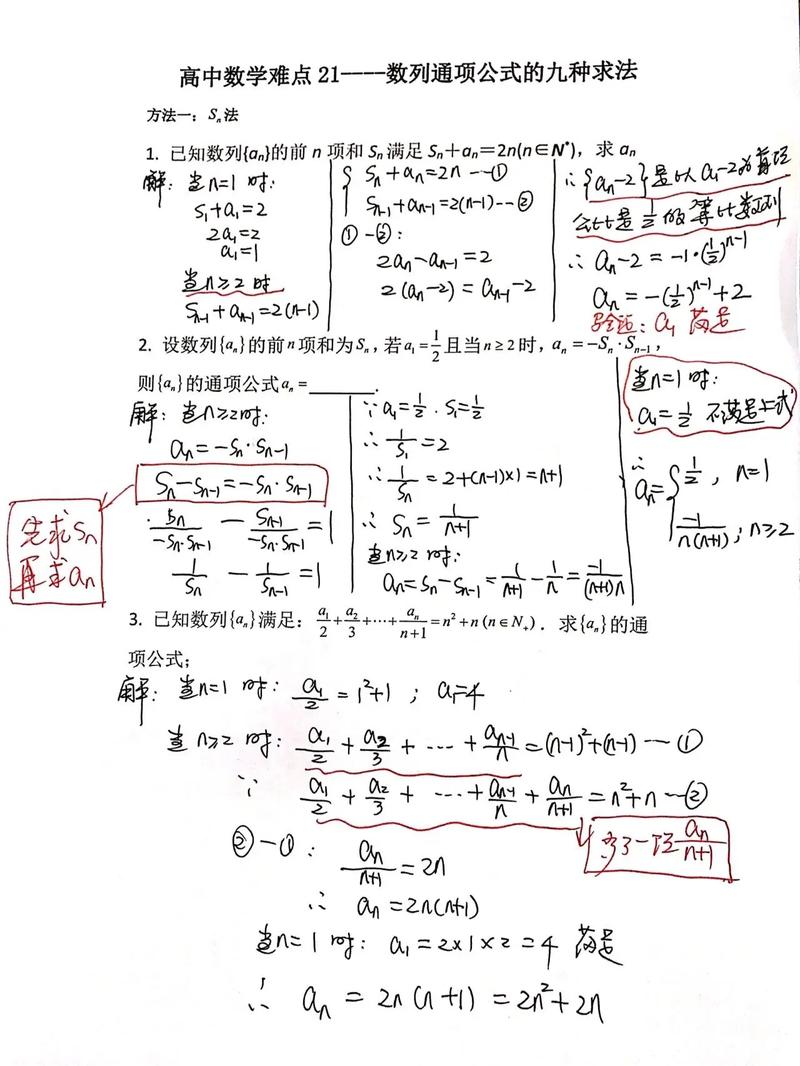 高中数学难点 21----数列通项公式的九种求法
方法一：Sₙ法
1. 已知数列{aₙ}的前 n 项和 Sₙ 满足 Sₙ+aₙ=2n(n∈N*)，求 aₙ
解：当n=1 时：
S₁+a₁=2
2a₁=2
a₁=1
当n≥2 时
Sₙ₋₁+aₙ₋₁=2(n-1)
{ Sₙ+aₙ=2n --①
Sₙ₋₁+aₙ₋₁=2(n-1)--②
①-②：
2aₙ-aₙ₋₁=2
2(aₙ-2)=aₙ₋₁-2
∴{aₙ-2}是以a₁-2为首项
公比是1/2的等比数列
∴ aₙ-2=-1·(1/2)ⁿ⁻¹
aₙ=-(1/2)ⁿ⁻¹+2
验证：a₁ 满足
2. 设数列{aₙ}的前n项和为Sₙ,若a₁=1/2且当n≥2时，aₙ=-Sₙ·Sₙ₋₁，
则{aₙ}的通项公式aₙ=______.
解：当n≥2时：
aₙ=-Sₙ·Sₙ₋₁
Sₙ-Sₙ₋₁=-Sₙ·Sₙ₋₁
先求Sₙ
再求aₙ
Sₙ/(-Sₙ·Sₙ₋₁) - Sₙ₋₁/(-Sₙ·Sₙ₋₁)=1
1/Sₙ - 1/Sₙ₋₁=1
∵ a₁=1/2. S₁=1/2
∴ 1/S₁=2
∴ 1/Sₙ=2+(n-1)×1=n+1
∴ Sₙ=1/(n+1)
当n≥2 时：
aₙ=Sₙ-Sₙ₋₁=1/(n+1)-1/n=-1/((n+1)n)
当n=1 时：
a₁=1/2 不满足上式
∴
aₙ={ 1/2, n=1
-1/(n(n+1)), n≥2
3. 已知数列{aₙ}满足：a₁/2+a₂/3+⋯+aₙ/(n+1)=n²+n(n∈N₊)．求{aₙ}的通
项公式；
解：当n=1 时：a₁/2=1²+1；a₁=4
当n≥2 时：a₁/2+a₂/3+⋯+aₙ₋₁/n=(n-1)²+(n-1)—①
∵ a₁/2+a₂/3+⋯+aₙ₋₁/n+aₙ/(n+1)=n²+n—②
多了一项aₙ/(n+1)
②-①：aₙ/(n+1)=2n
∴ aₙ=2n(n+1)
当n=1 时：a₁=2×1×2=4 满足
∴ aₙ=2n(n+1)=2n²+2n